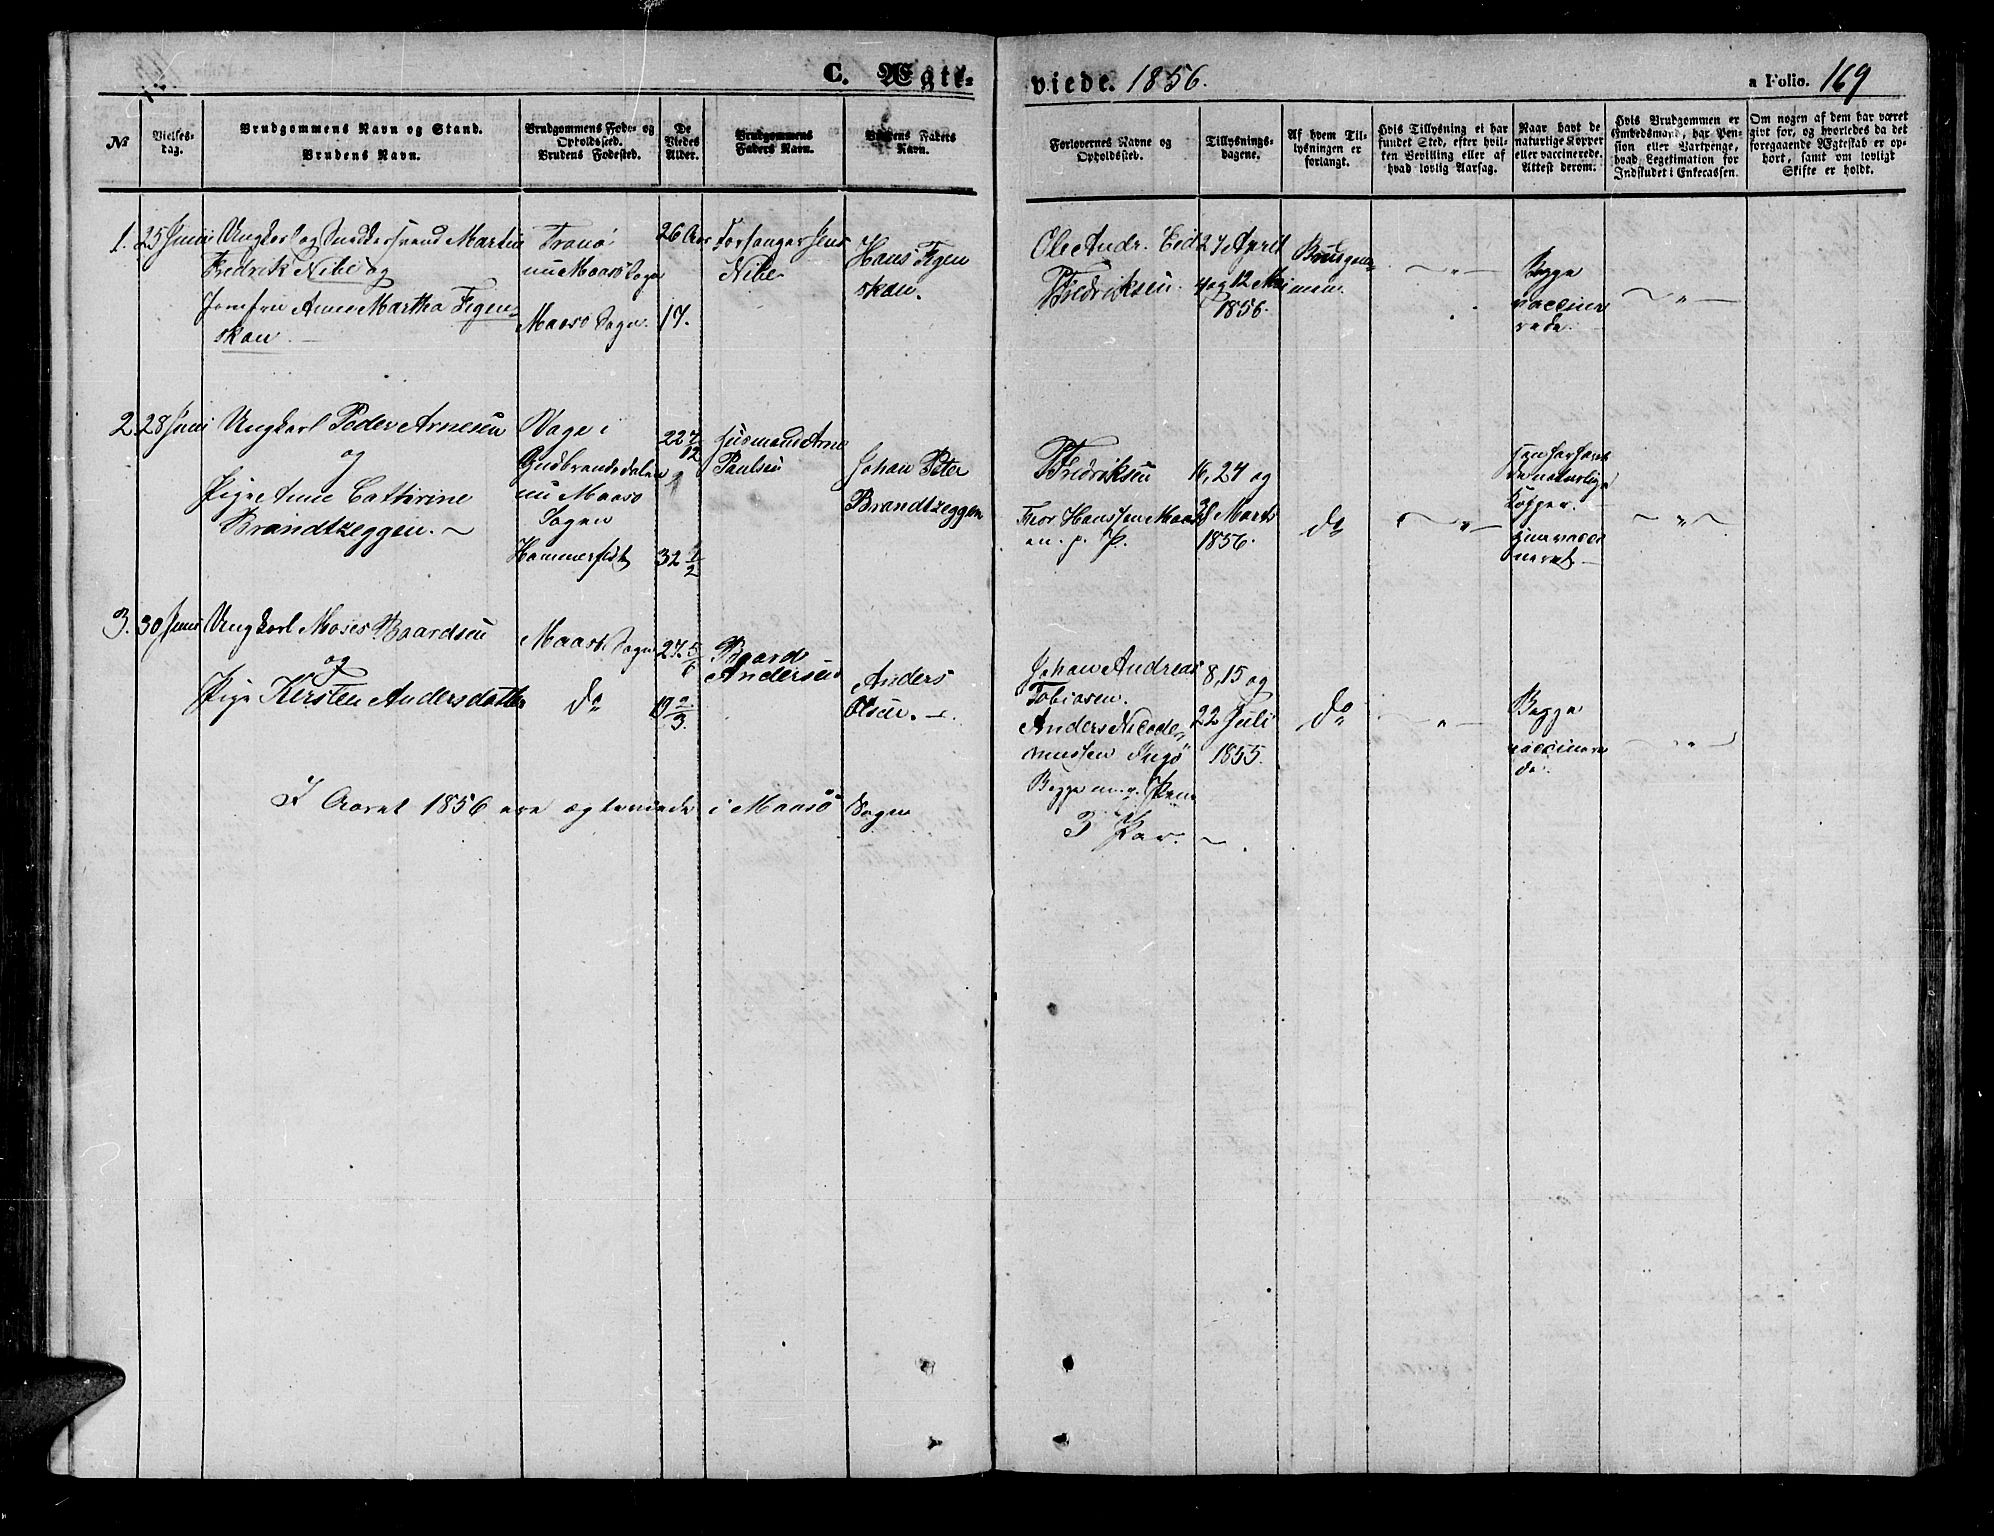 C. Ægte-
viede. 1856.
a Folio. 169
№
Vielses-
dag.
Brudgommens Navn og Stand.
Brudens Navn.
Brudgommens Føde- og
Opholdssted.
Brudens Fødested.
De
Viedes
Alder.
Brudgommens
Faders Navn.
Brudens Faders
Navn.
Forlovernes Navne og
Opholdssted.
Tillysnings-
dagene.
Af hvem Til-
lysningen er
forlangt.
Hvis Tillysning ei har
fundet Sted, efter hvil-
ken Bevilling eller af
hvad lovlig Aarsag.
Naar havt de
naturlige Kopper
eller vaccinerede.
Attest derom.
Hvis Brudgommen er
Embedsmand, har Pen-
sion eller Vartpenge,
hvad Legetimation for
Indskudet i Enkecassen.
Om nogen af dem har været
gift før, og hvorledes da det
foregaaende Ægteskab er op-
hørt, samt om lovligt
Skifte er holdt.
1.
25 Juni
Ungkarl og Snedkersvend Martin
Fredrik Nibe og
Jomfru Anne Martha Figen-
skau.
Tranø
nu Maasø Sogn
Maasø Sogn.
26 Aar
17.
Forsanger Jens
Nibe
Hans Figen
skau.
Ole Andr. Eid
Fredriksen.
27 April
4 og 12 Mai
1856.
Brudgom-
men.
— " —
Begge
vaccine
rede.
— " —
2.
28 Juni
Ungkarl Peder Arnesen
og
Pige Anne Cathrine
Brandtzeggen.
Vage i
Gudbrandsdalen
nu Maasø
Sogn
Hammerfest
22 7/12
32 1/2
Husmand Arne
Paulsen
Johan Peter
Brandtzeggen
Fredriksen
Thor Hanssen Maas
en. p. P.
16, 24 og
Marts
1856.
do
— " —
han har havt
de naturlige
Kopper.
hun vacci
neret.
— " —
3.
30 Juni
Ungkarl Moses Baardsen
og
Pige Kirsten Andersdatter
Maasø Sogn
do
27 5/6
19 2/3.
Baard
Andersen
Anders
Olsen.
Johan Andreas
Tobiasen.
Anders Nicode-
mussen Ingø
Begge m. p. Pen
8, 15 og
22 Juli
1855.
do
— " —
Begge
vaccinere
de.
— " —
I Aaret 1856 ere ægteviede i Maasø Sogn
3 Par.